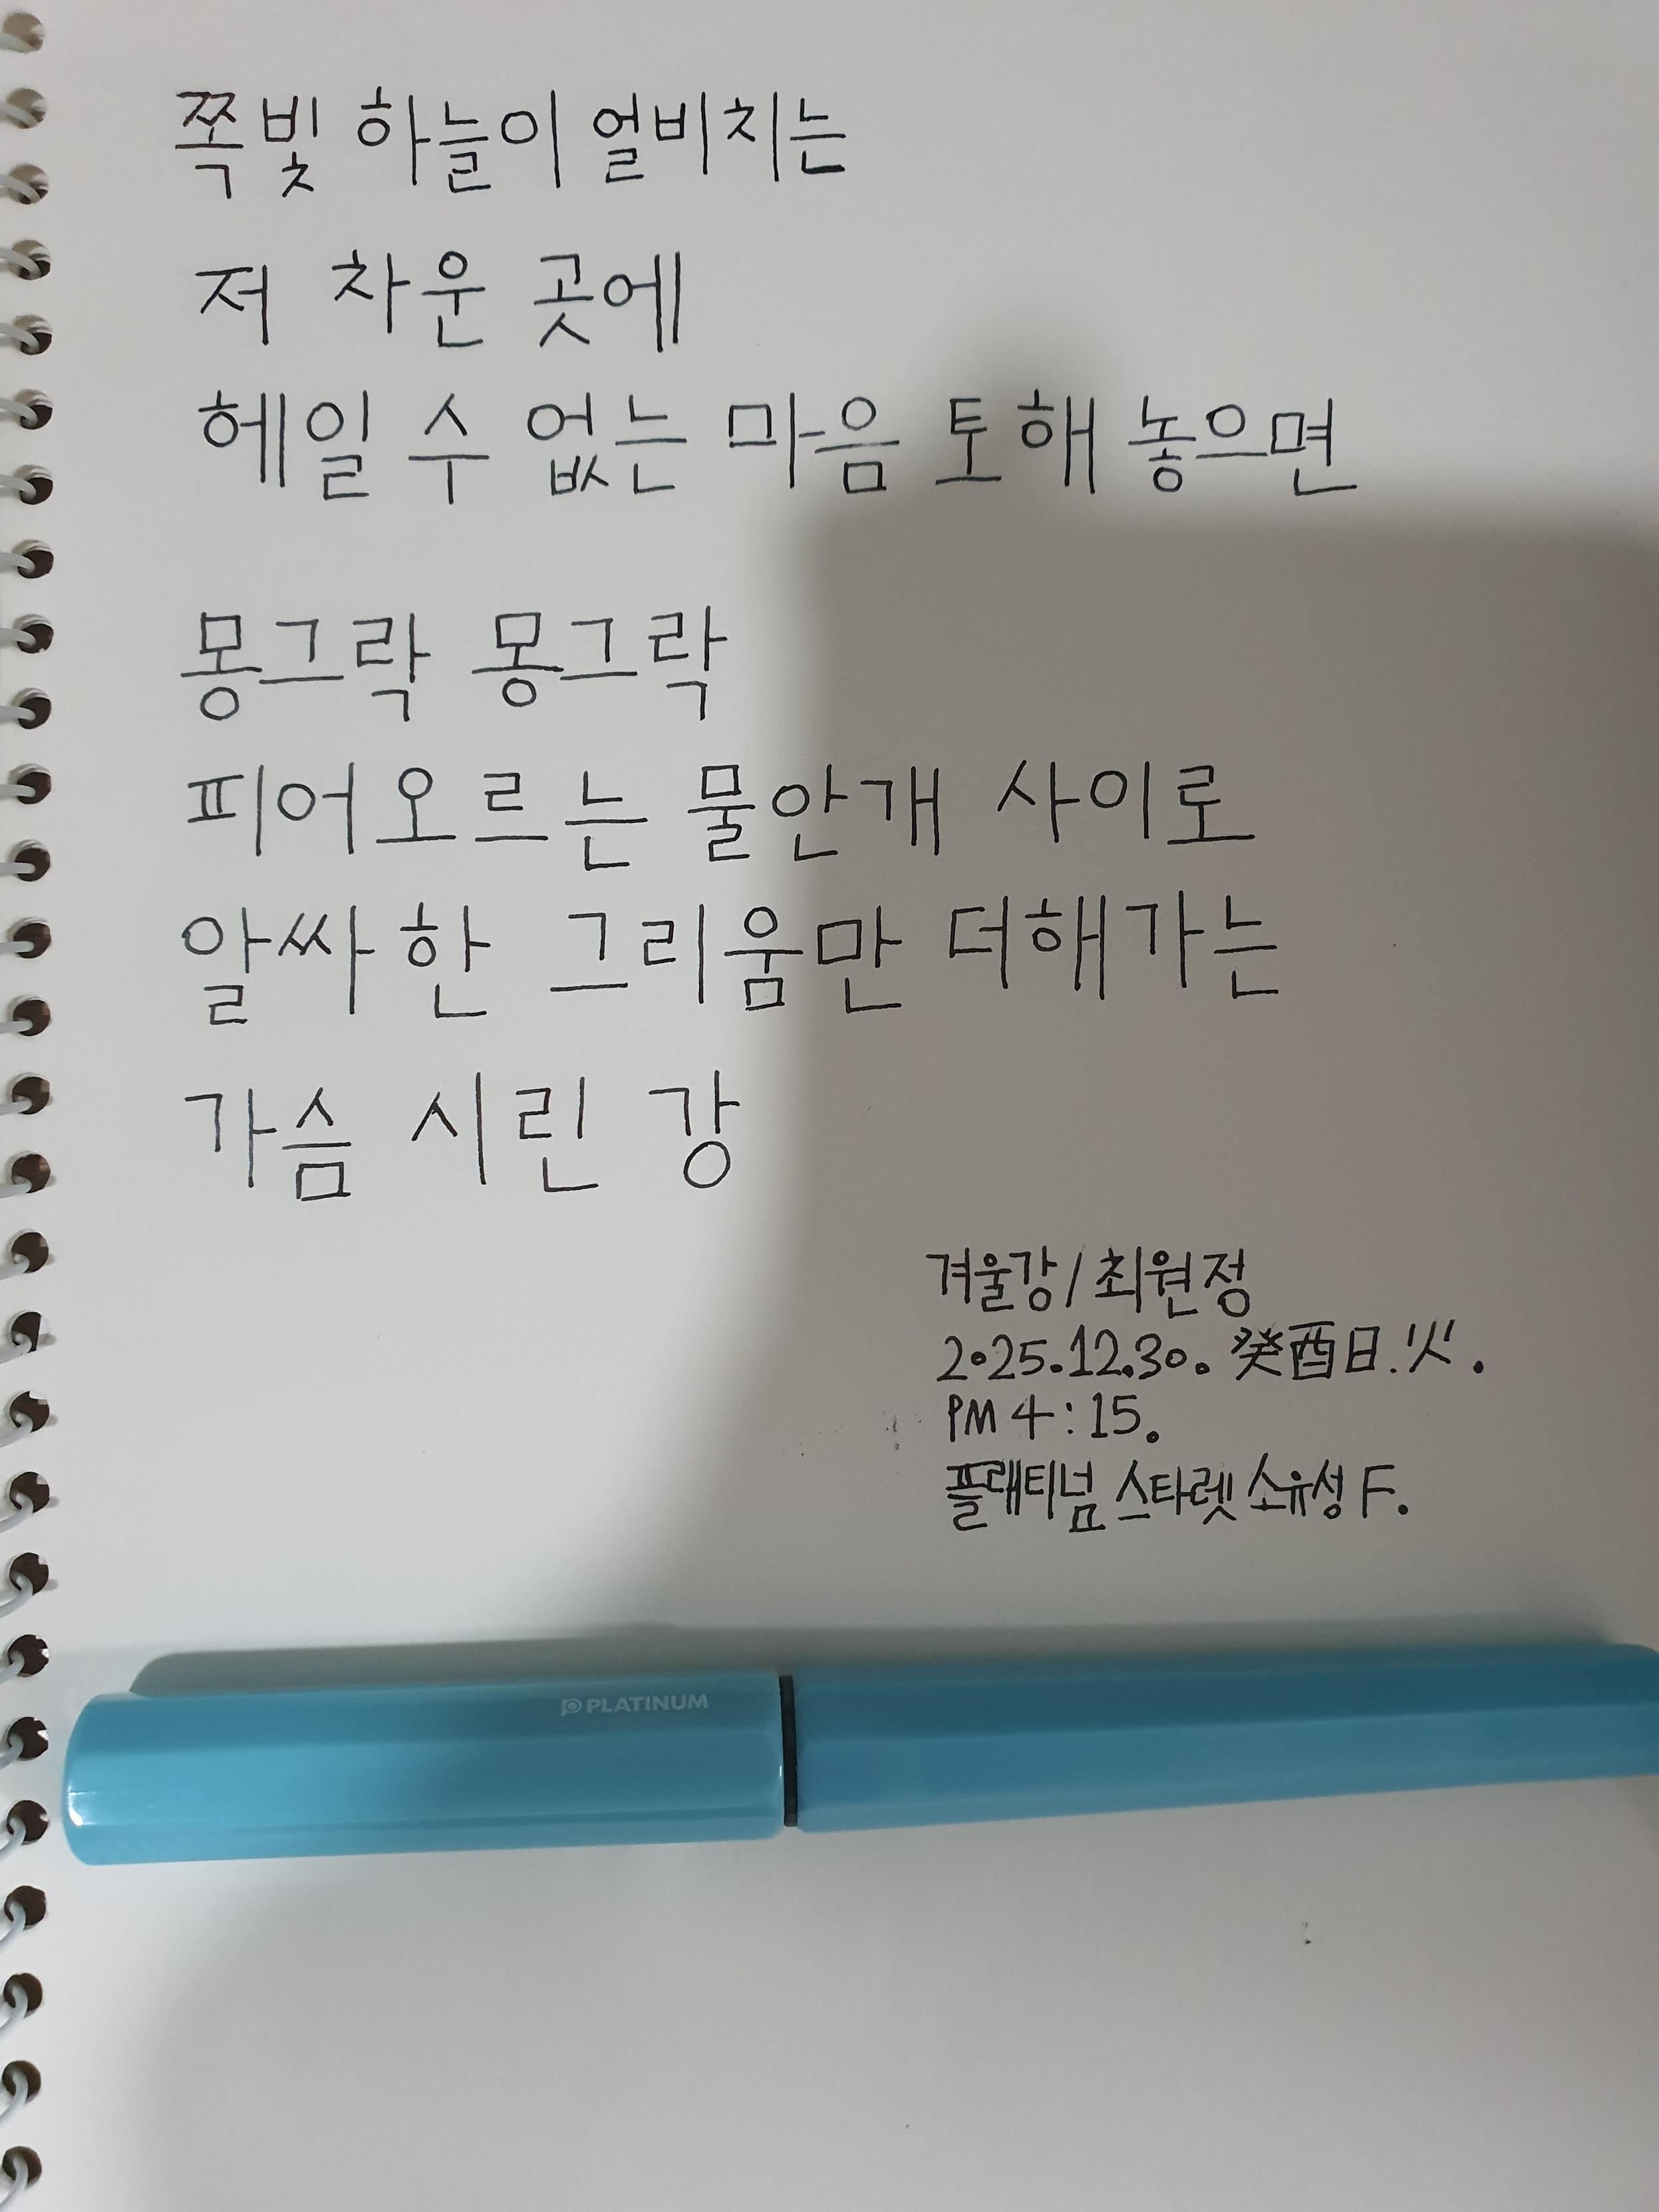 쪽빛 하늘이 얼비치는
저 차운 곳에
헤일 수 없는 마음 토해 놓으면
몽그락 몽그락
피어오르는 물안개 사이로
알싸한 그리움만 더해가는
가슴 시린 강
겨울강/최원정
2025.12.30. 癸酉日.火.
PM 4:15.
플래티넘 스타렛 소유성 F.
PLATINUM